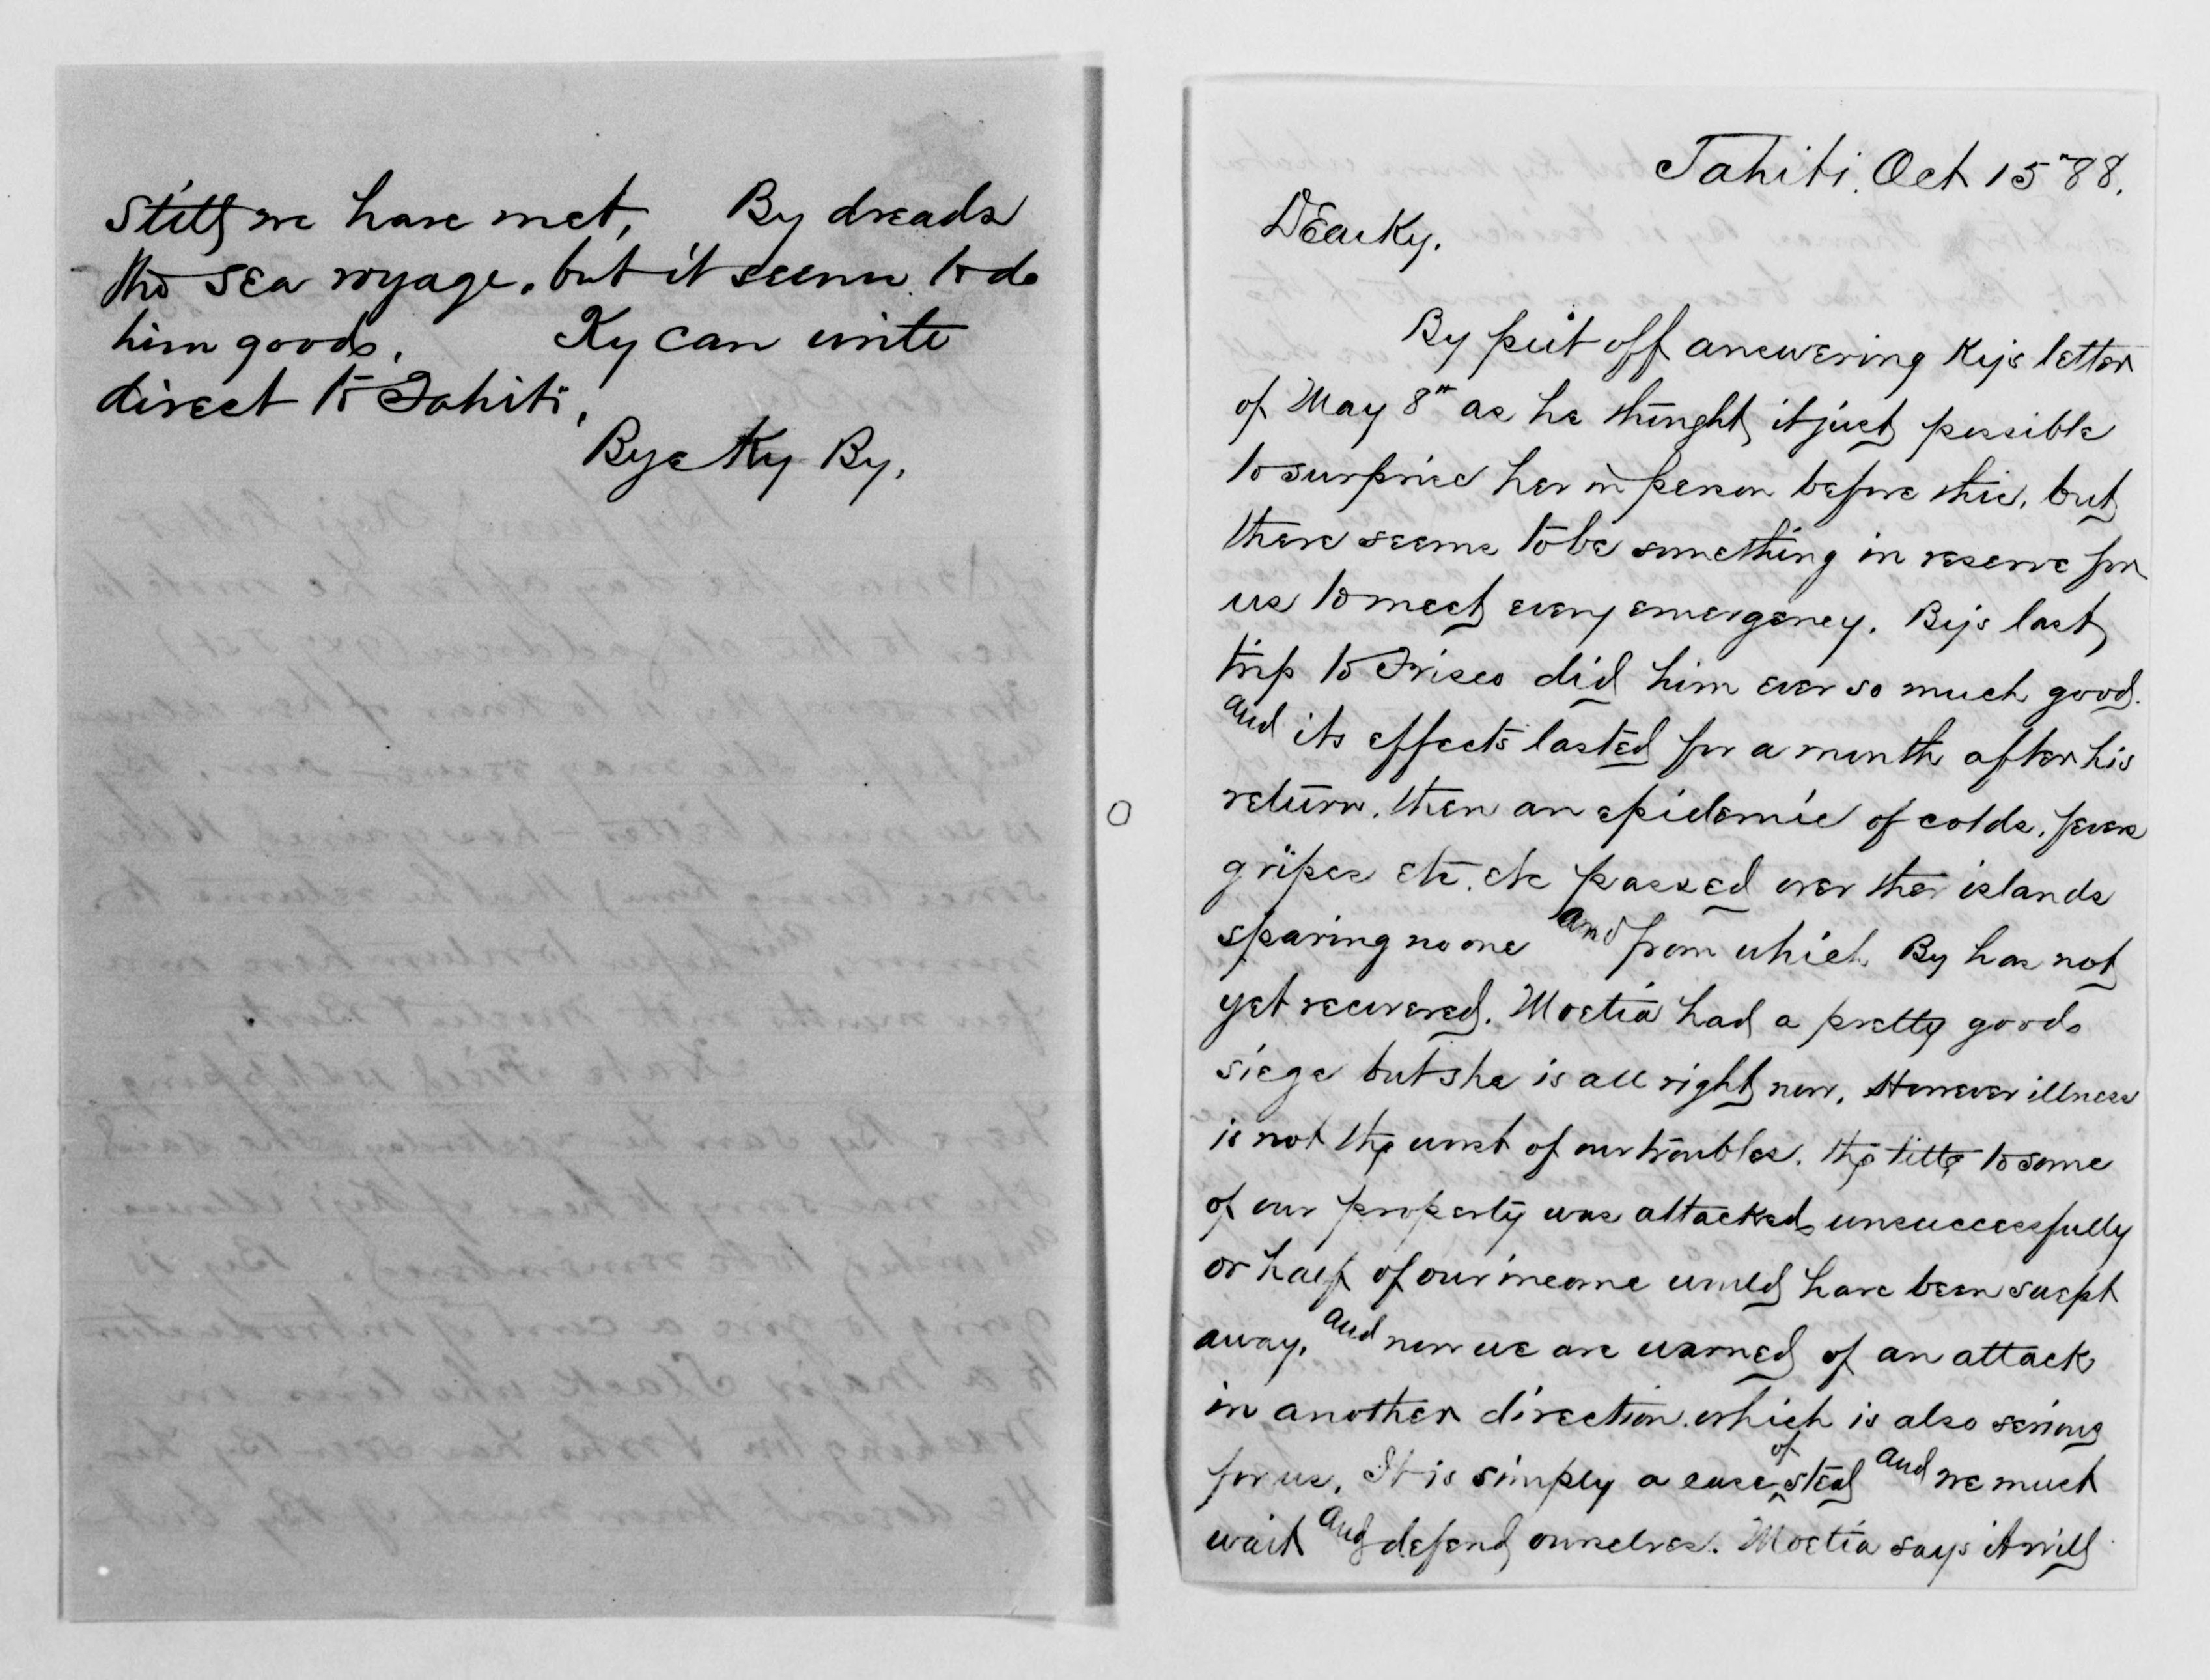 Still we have met, By dreads
the sea voyage, but it seems to do
him good. Ky can write
direct to Tahiti,
Bye Ky By.
Tahiti. Oct 15th 88.
Dear Ky.
By put off answering Ky's letter
of May 8th as he thought it just possible
to surprise her in person before this, but
there seems to be something in reserve for
us to meet every emergency. By's last
trip to Frisco did him ever so much good.
and its effects lasted for a month after his
return. then an epidemic of colds, fevers
gripes etc. etc passed over the islands
sparing no one and from which By has not
yet recovered. Moetia had a pretty good
siege but she is all right now. However illness
is not the worst of our troubles. the title to some
of our property was attacked unsuccessfully
or half of our income would have been swept
away. and now we are warned of an attack
in another direction. which is also serious
for us. It is simply a case of steal and we must
wait and defend ourselves. Moetia says it will